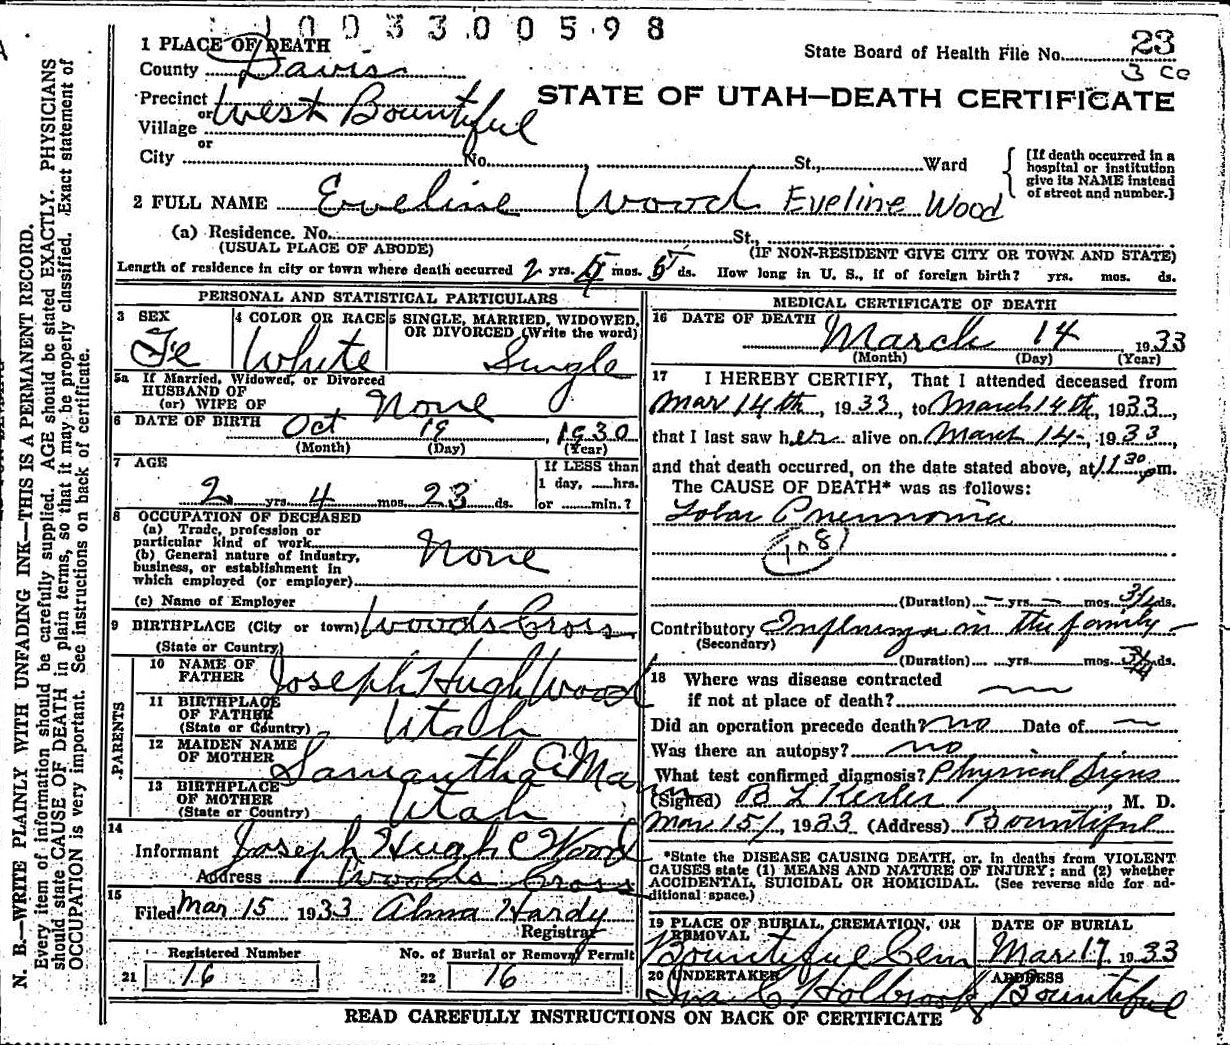 1 0 0 3 3 0 0 5 9 8
1 PLACE OF DEATH
State Board of Health File No. 23
County Davis
3 co
Precinct West Bountiful
or
STATE OF UTAH—DEATH CERTIFICATE
Village
or
City No. St., Ward
[If death occurred in a hospital or institution give its NAME instead of street and number.]
2 FULL NAME Eveline Wood Eveline Wood
(a) Residence. No. St.,
(USUAL PLACE OF ABODE) (IF NON-RESIDENT GIVE CITY OR TOWN AND STATE)
Length of residence in city or town where death occurred 2 yrs. 4 mos. 5 ds. How long in U. S., if of foreign birth? yrs. mos. ds.
PERSONAL AND STATISTICAL PARTICULARS
3 SEX Fe
4 COLOR OR RACE White
5 SINGLE, MARRIED, WIDOWED, OR DIVORCED (Write the word) Single
5a If Married, Widowed, or Divorced
HUSBAND OF
(or) WIFE OF None
6 DATE OF BIRTH Oct 19, 1930
(Month) (Day) (Year)
7 AGE
2 yrs. 4 mos. 23 ds.
If LESS than
1 day, hrs.
or min.?
8 OCCUPATION OF DECEASED
(a) Trade, profession or
particular kind of work
(b) General nature of industry,
business, or establishment in
which employed (or employer) None
(c) Name of Employer
9 BIRTHPLACE (City or town) Woods Cross
(State or Country)
PARENTS
10 NAME OF FATHER Joseph Hugh Wood
11 BIRTHPLACE OF FATHER Utah
(State or Country)
12 MAIDEN NAME OF MOTHER Samantha A Mann
13 BIRTHPLACE OF MOTHER Utah
(State or Country)
14
Informant Joseph Hugh Wood
Address Woods Cross
15
Filed Mar 15 1933 Alma Hardy
Registrar
Registered Number
21 16
No. of Burial or Removal Permit
22 16
MEDICAL CERTIFICATE OF DEATH
16 DATE OF DEATH
March 14 1933
(Month) (Day) (Year)
17 I HEREBY CERTIFY, That I attended deceased from
Mar 14th, 1933, to March 14th, 1933,
that I last saw her alive on March 14, 1933,
and that death occurred, on the date stated above, at 11 30 pm.
The CAUSE OF DEATH* was as follows:
Lobar Pneumonia
108
(Duration) — yrs. — mos. 3/4 ds.
Contributory Influenza in the family
(Secondary)
(Duration) yrs. mos. 3/4 ds.
18 Where was disease contracted
if not at place of death?
Did an operation precede death? no Date of
Was there an autopsy? no
What test confirmed diagnosis? Physical Signs
(Signed) B L Kesler, M. D.
Mar 15, 1933 (Address) Bountiful
*State the DISEASE CAUSING DEATH, or, in deaths from VIOLENT
CAUSES state (1) MEANS AND NATURE OF INJURY; and (2) whether
ACCIDENTAL, SUICIDAL OR HOMICIDAL. (See reverse side for ad-
ditional space.)
19 PLACE OF BURIAL, CREMATION, OR REMOVAL
Bountiful Cem
DATE OF BURIAL
Mar 17 1933
20 UNDERTAKER
Ira C Holbrook
ADDRESS
Bountiful
READ CAREFULLY INSTRUCTIONS ON BACK OF CERTIFICATE
N. B.—WRITE PLAINLY WITH UNFADING INK—THIS IS A PERMANENT RECORD.
Every item of information should be carefully supplied. AGE should be stated EXACTLY. PHYSICIANS
should state CAUSE OF DEATH in plain terms, so that it may be properly classified. Exact statement of
OCCUPATION is very important. See instructions on back of certificate.